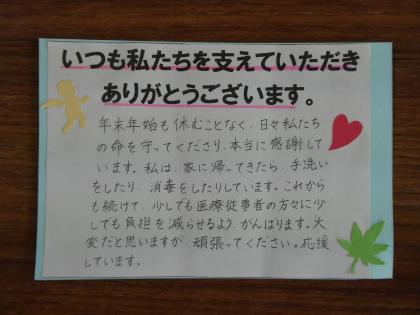 いつも私たちを支えていただき
ありがとうございます。
年末年始も休むことなく、日々私たち
の命を守ってくださり、本当に感謝して
います。私は、家に帰ってきたら、手洗い
をしたり、消毒をしたりしています。これから
も続けて、少しでも医療従事者の方々に少
しでも負担を減らせるよう、がんばります。大
変だと思いますが、頑張ってください。応援
しています。